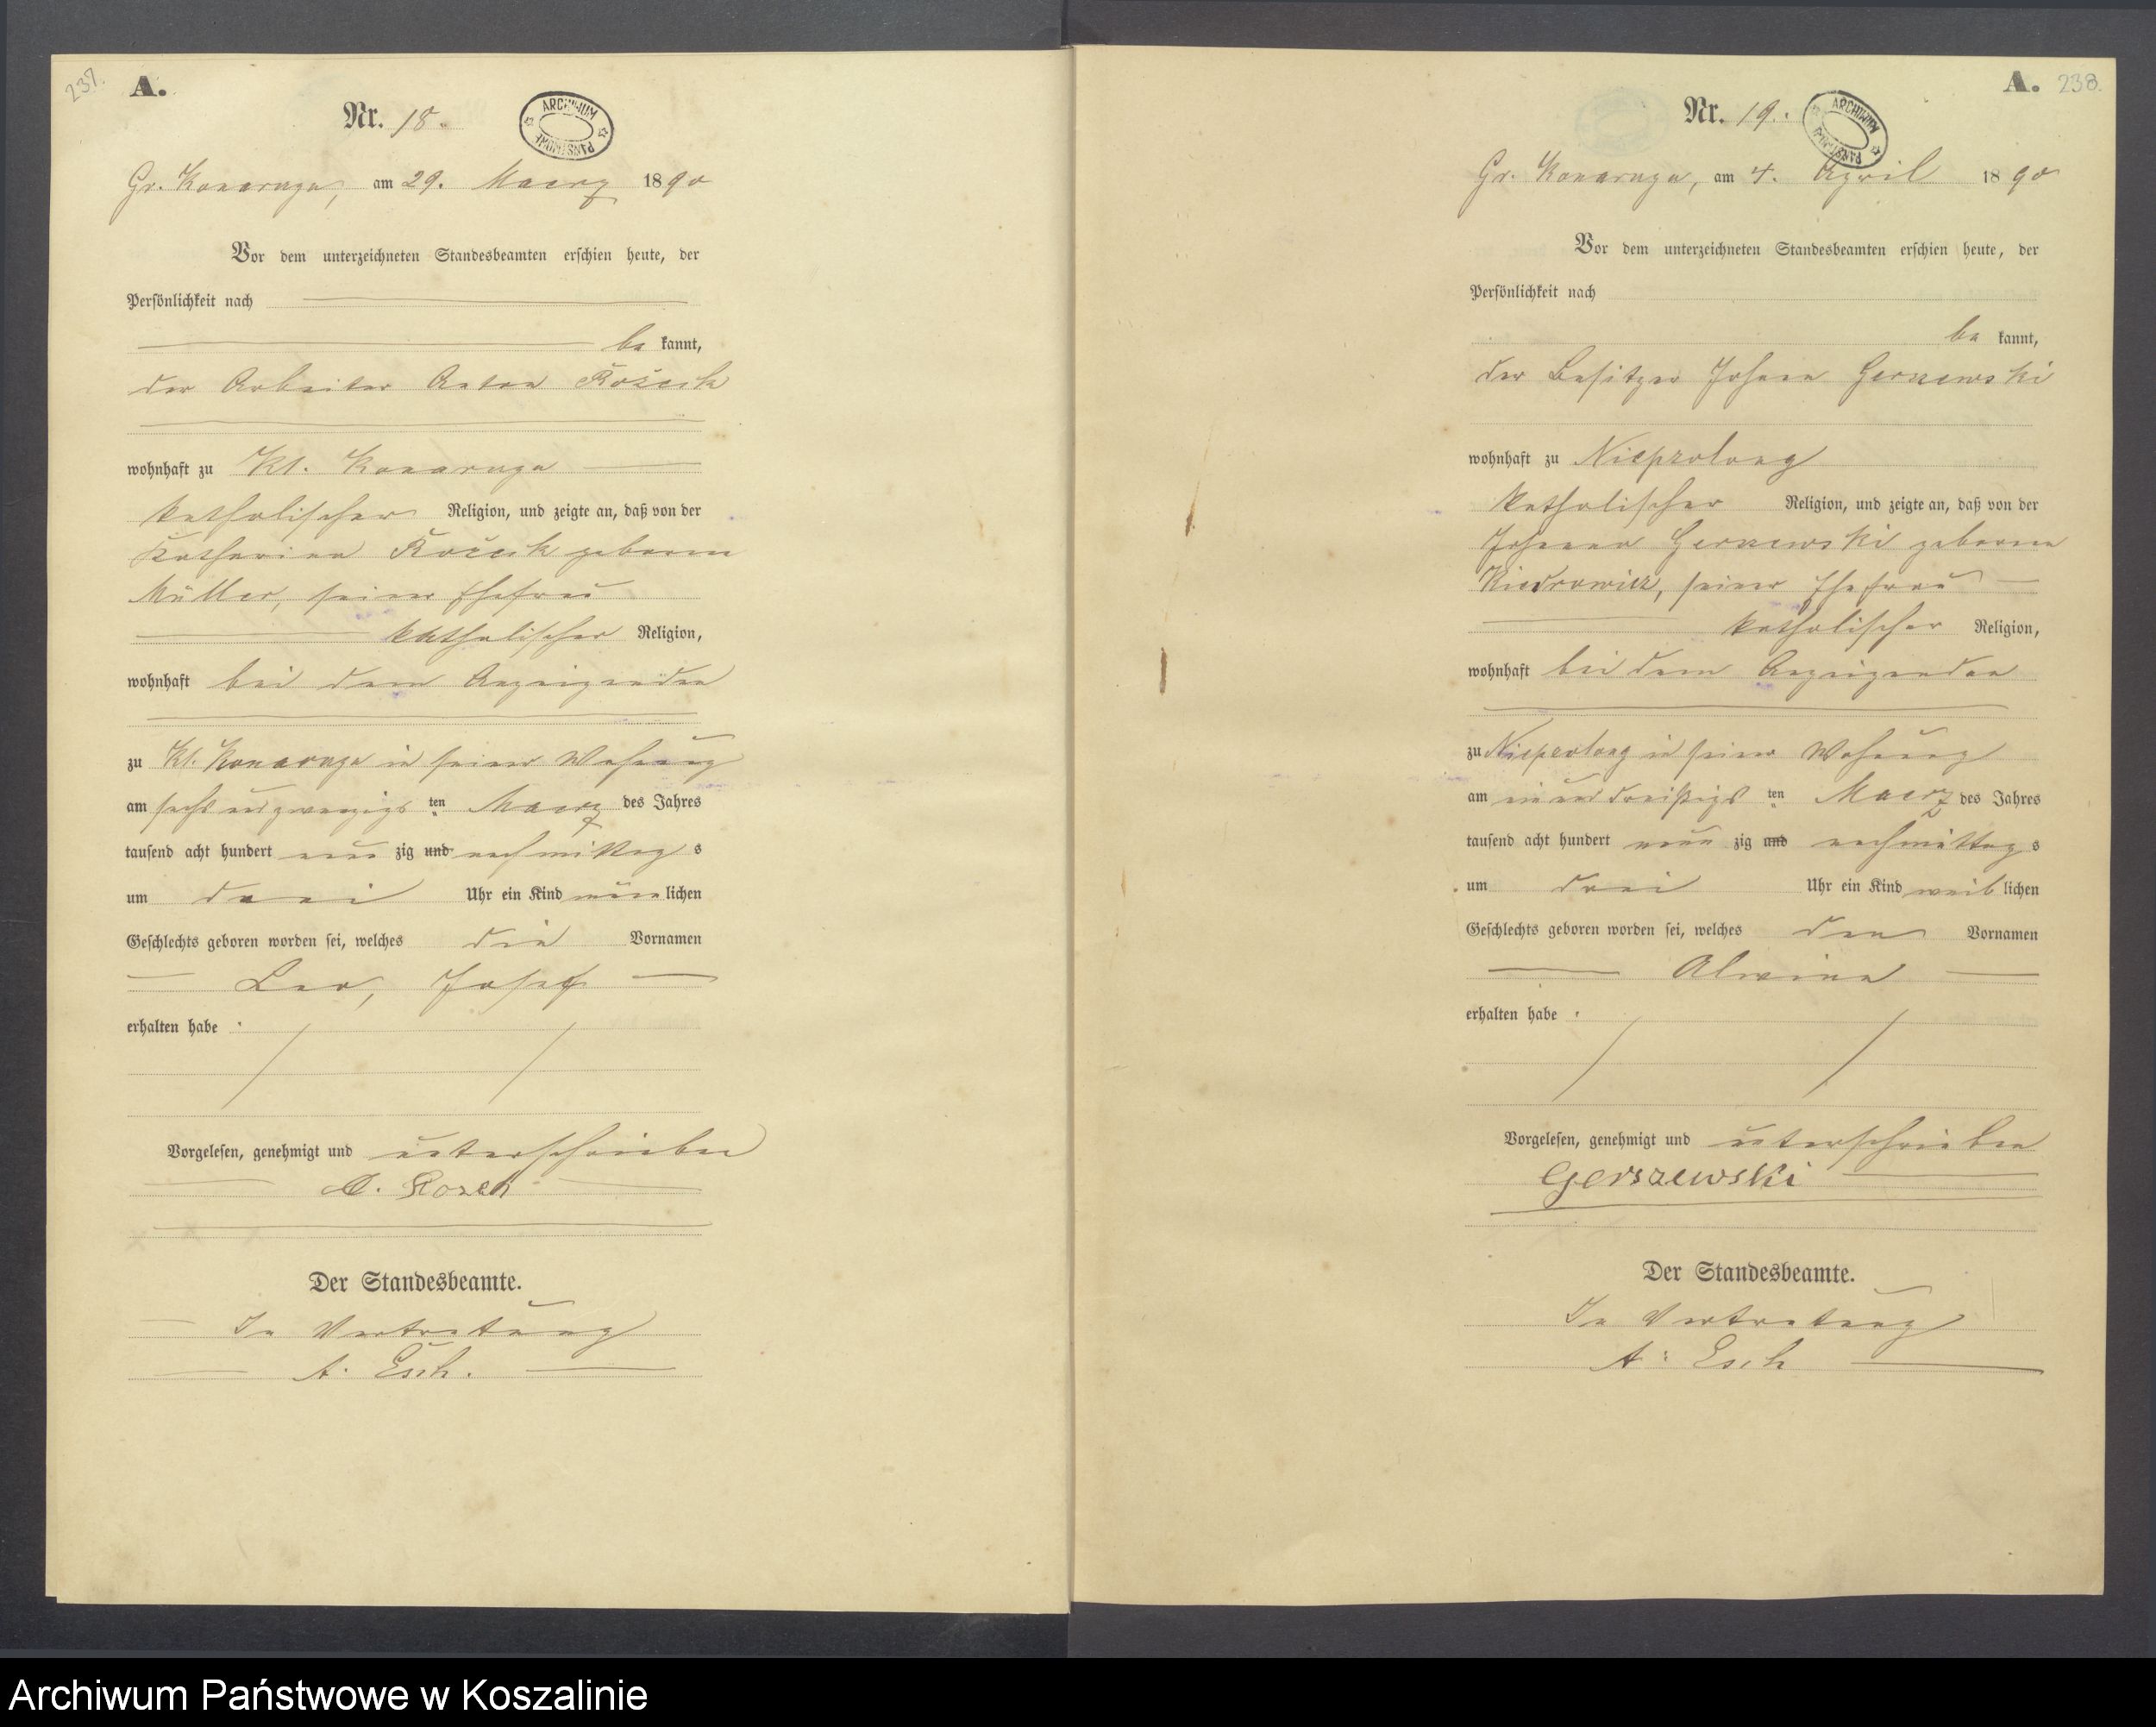 237.
A.
Nr. 18.
ARCHIWUM PAŃSTWOWE
Gr. Konarzyn, am 29. Maerz 1890
Vor dem unterzeichneten Standesbeamten erschien heute, der
Persönlichkeit nach
be kannt,
der Arbeiter Anton
wohnhaft zu Kl. Konarzyn
katholischer Religion, und zeigte an, daß von der
Katharina geborne
Müller, seiner Ehefrau
katholischer Religion,
wohnhaft bei dem Anzeigenden
zu Kl. Konarzyn in seiner Wohnung
am sechsundzwanzigs ten Maerz des Jahres
tausend acht hundert neun zig und nachmittag s
um drei Uhr ein Kind männ lichen
Geschlechts geboren worden sei, welches die Vornamen
Leo, Josef
erhalten habe
Vorgelesen, genehmigt und unterschrieben
Der Standesbeamte.
In Vertretung
A. Esch.
A. 238.
Nr. 19.
ARCHIWUM PAŃSTWOWE
Gr. Konarzyn, am 4. April 1890
Vor dem unterzeichneten Standesbeamten erschien heute, der
Persönlichkeit nach
be kannt,
der Besitzer Johann Gerszewski
wohnhaft zu Nieprzolong
katholischer Religion, und zeigte an, daß von der
Johanna Gerszewski geborne
Kiedrowicz, seiner Ehefrau
katholischer Religion,
wohnhaft bei dem Anzeigenden
zu Nieprzolong in seiner Wohnung
am einunddreißigs ten Maerz des Jahres
tausend acht hundert neun zig und nachmittag s
um drei Uhr ein Kind weib lichen
Geschlechts geboren worden sei, welches den Vornamen
Alwina
erhalten habe
Vorgelesen, genehmigt und unterschrieben
Gerszewski
Der Standesbeamte.
In Vertretung
A. Esch
Archiwum Państwowe w Koszalinie